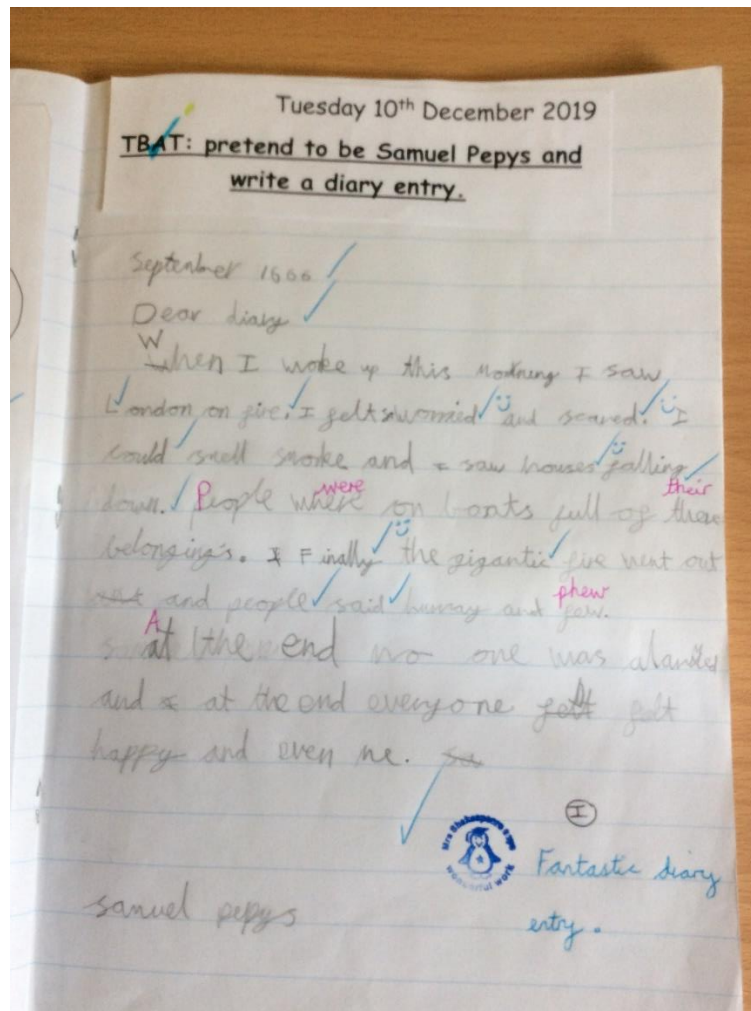 Tuesday 10th December 2019
TBAT: pretend to be Samuel Pepys and
write a diary entry.
September 1666
Dear diary
When I woke up this morning I saw
London on fire. I felt worried and scared. I
could smell smoke and I saw houses falling
down. People where were on boats full of there their
belonging's. Finally the gigantic fire went out
and people said hurray and few. phew
At the end no one was
and at the end everyone felt
happy and even me.
I
Mrs Shakespeare says
wonderful work
Fantastic diary
entry.
samuel pepys